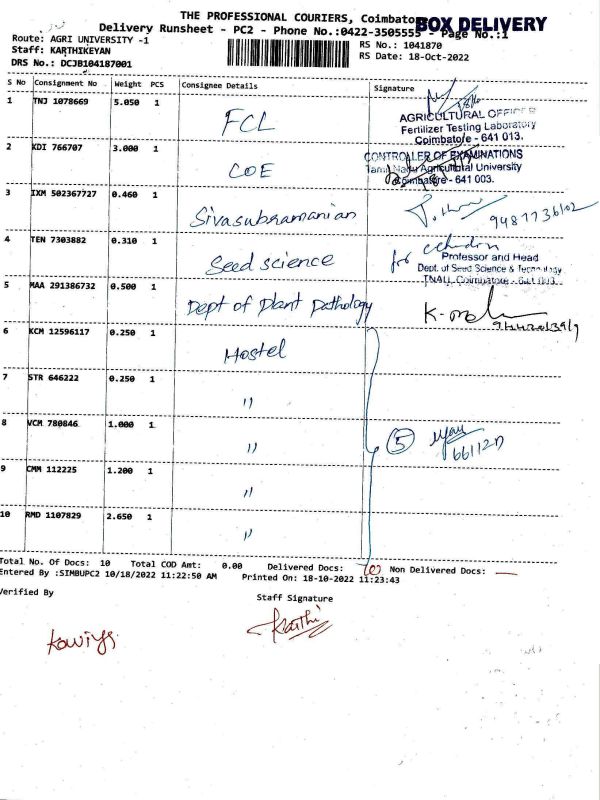 THE PROFESSIONAL COURIERS, Coimbatore
BOX DELIVERY
Delivery Runsheet - PC2 - Phone No.:0422-3505555 - Page No.:1
Route: AGRI UNIVERSITY -1
Staff: KARTHIKEYAN
DRS No.: DCJB104187001
RS No.: 1041870
RS Date: 18-Oct-2022
S No Consignment No Weight PCS Consignee Details Signature
1 TNJ 1078669 5.050 1 FCL
AGRICULTURAL OFFICER
Fertilizer Testing Laboratory
Coimbatore - 641 013.
2 KDI 766707 3.000 1 COE
CONTROLLER OF EXAMINATIONS
Tamil Nadu Agricultural University
Coimbatore - 641 003.
3 IXM 502367727 0.460 1 Sivasubramanian
4 TEN 7303882 0.310 1 Seed science
for
Professor and Head
Dept. of Seed Science & Technology
TNAU, Coimbatore - 641 003.
5 MAA 291386732 0.500 1 Dept of Plant Pathology
6 KCM 12596117 0.250 1 Hostel
7 STR 646222 0.250 1 "
8 VCM 780846 1.000 1 "
5
9 CMM 112225 1.200 1 "
10 RMD 1107829 2.650 1 "
Total No. Of Docs: 10 Total COD Amt: 0.00 Delivered Docs: 10 Non Delivered Docs: —
Entered By :SIMBUPC2 10/18/2022 11:22:50 AM Printed On: 18-10-2022 11:23:43
Verified By
Staff Signature
Karthi